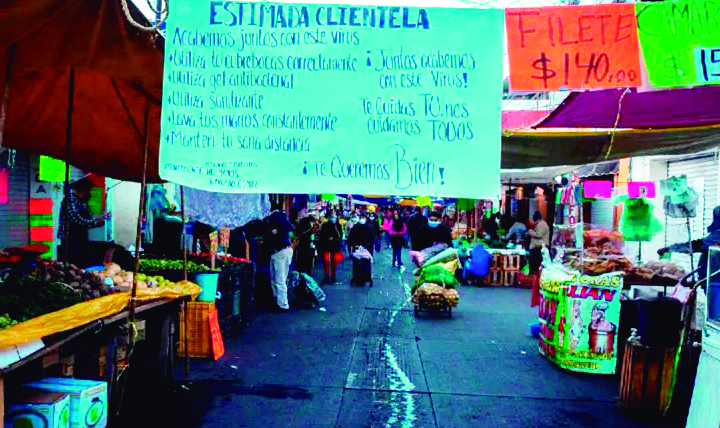 ESTIMADA CLIENTELA
Acabemos juntos con este virus
+Utiliza tu cubrebocas correctamente
+Utiliza gel antibacterial
+Utiliza sanitizante
+Lava tus manos constantemente
+Manten tu sana distancia
¡Juntos acabemos
con este Virus!
Te Cuidas TU, nos
cuidamos TODOS
¡Te Queremos Bien!
FILETE
$140.00
CAMAR
$15